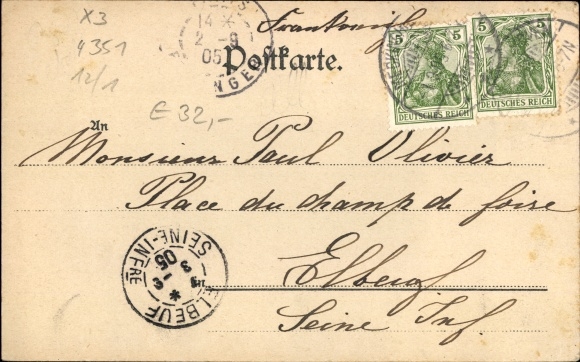 X3
4351
12/1
€ 32,-
14 *
2 - 9
05
Postkarte.
5 5
DEUTSCHES REICH
5 5
DEUTSCHES REICH
An
Monsieur Paul Olivier
Place du champ de foire
Elbeuf
Seine Inf.
ELBEUF
SEINE-INFRE
3 - 9
05
*